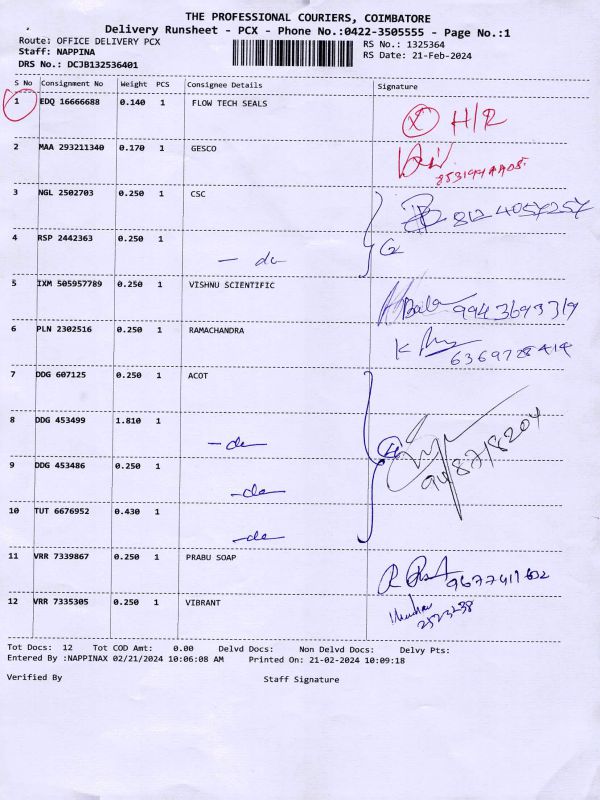 THE PROFESSIONAL COURIERS, COIMBATORE
Delivery Runsheet - PCX - Phone No.:0422-3505555 - Page No.:1
Route: OFFICE DELIVERY PCX
RS No.: 1325364
Staff: NAPPINA
RS Date: 21-Feb-2024
DRS No.: DCJB132536401
S No Consignment No Weight PCS Consignee Details Signature
1 EDQ 16666688 0.140 1 FLOW TECH SEALS
H/R
2 MAA 293211340 0.170 1 GESCO
3 NGL 2502703 0.250 1 CSC
812 4057257
4 RSP 2442363 0.250 1
- do
5 IXM 505957789 0.250 1 VISHNU SCIENTIFIC
Bala 9943693319
6 PLN 2302516 0.250 1 RAMACHANDRA
6369728414
7 DDG 607125 0.250 1 ACOT
8 DDG 453499 1.810 1
- do
9487718204
9 DDG 453486 0.250 1
- do
10 TUT 6676952 0.430 1
- do
11 VRR 7339867 0.250 1 PRABU SOAP
12 VRR 7335305 0.250 1 VIBRANT
Tot Docs: 12 Tot COD Amt: 0.00 Delvd Docs: Non Delvd Docs: Delvy Pts:
Entered By :NAPPINAX 02/21/2024 10:06:08 AM Printed On: 21-02-2024 10:09:18
Verified By Staff Signature